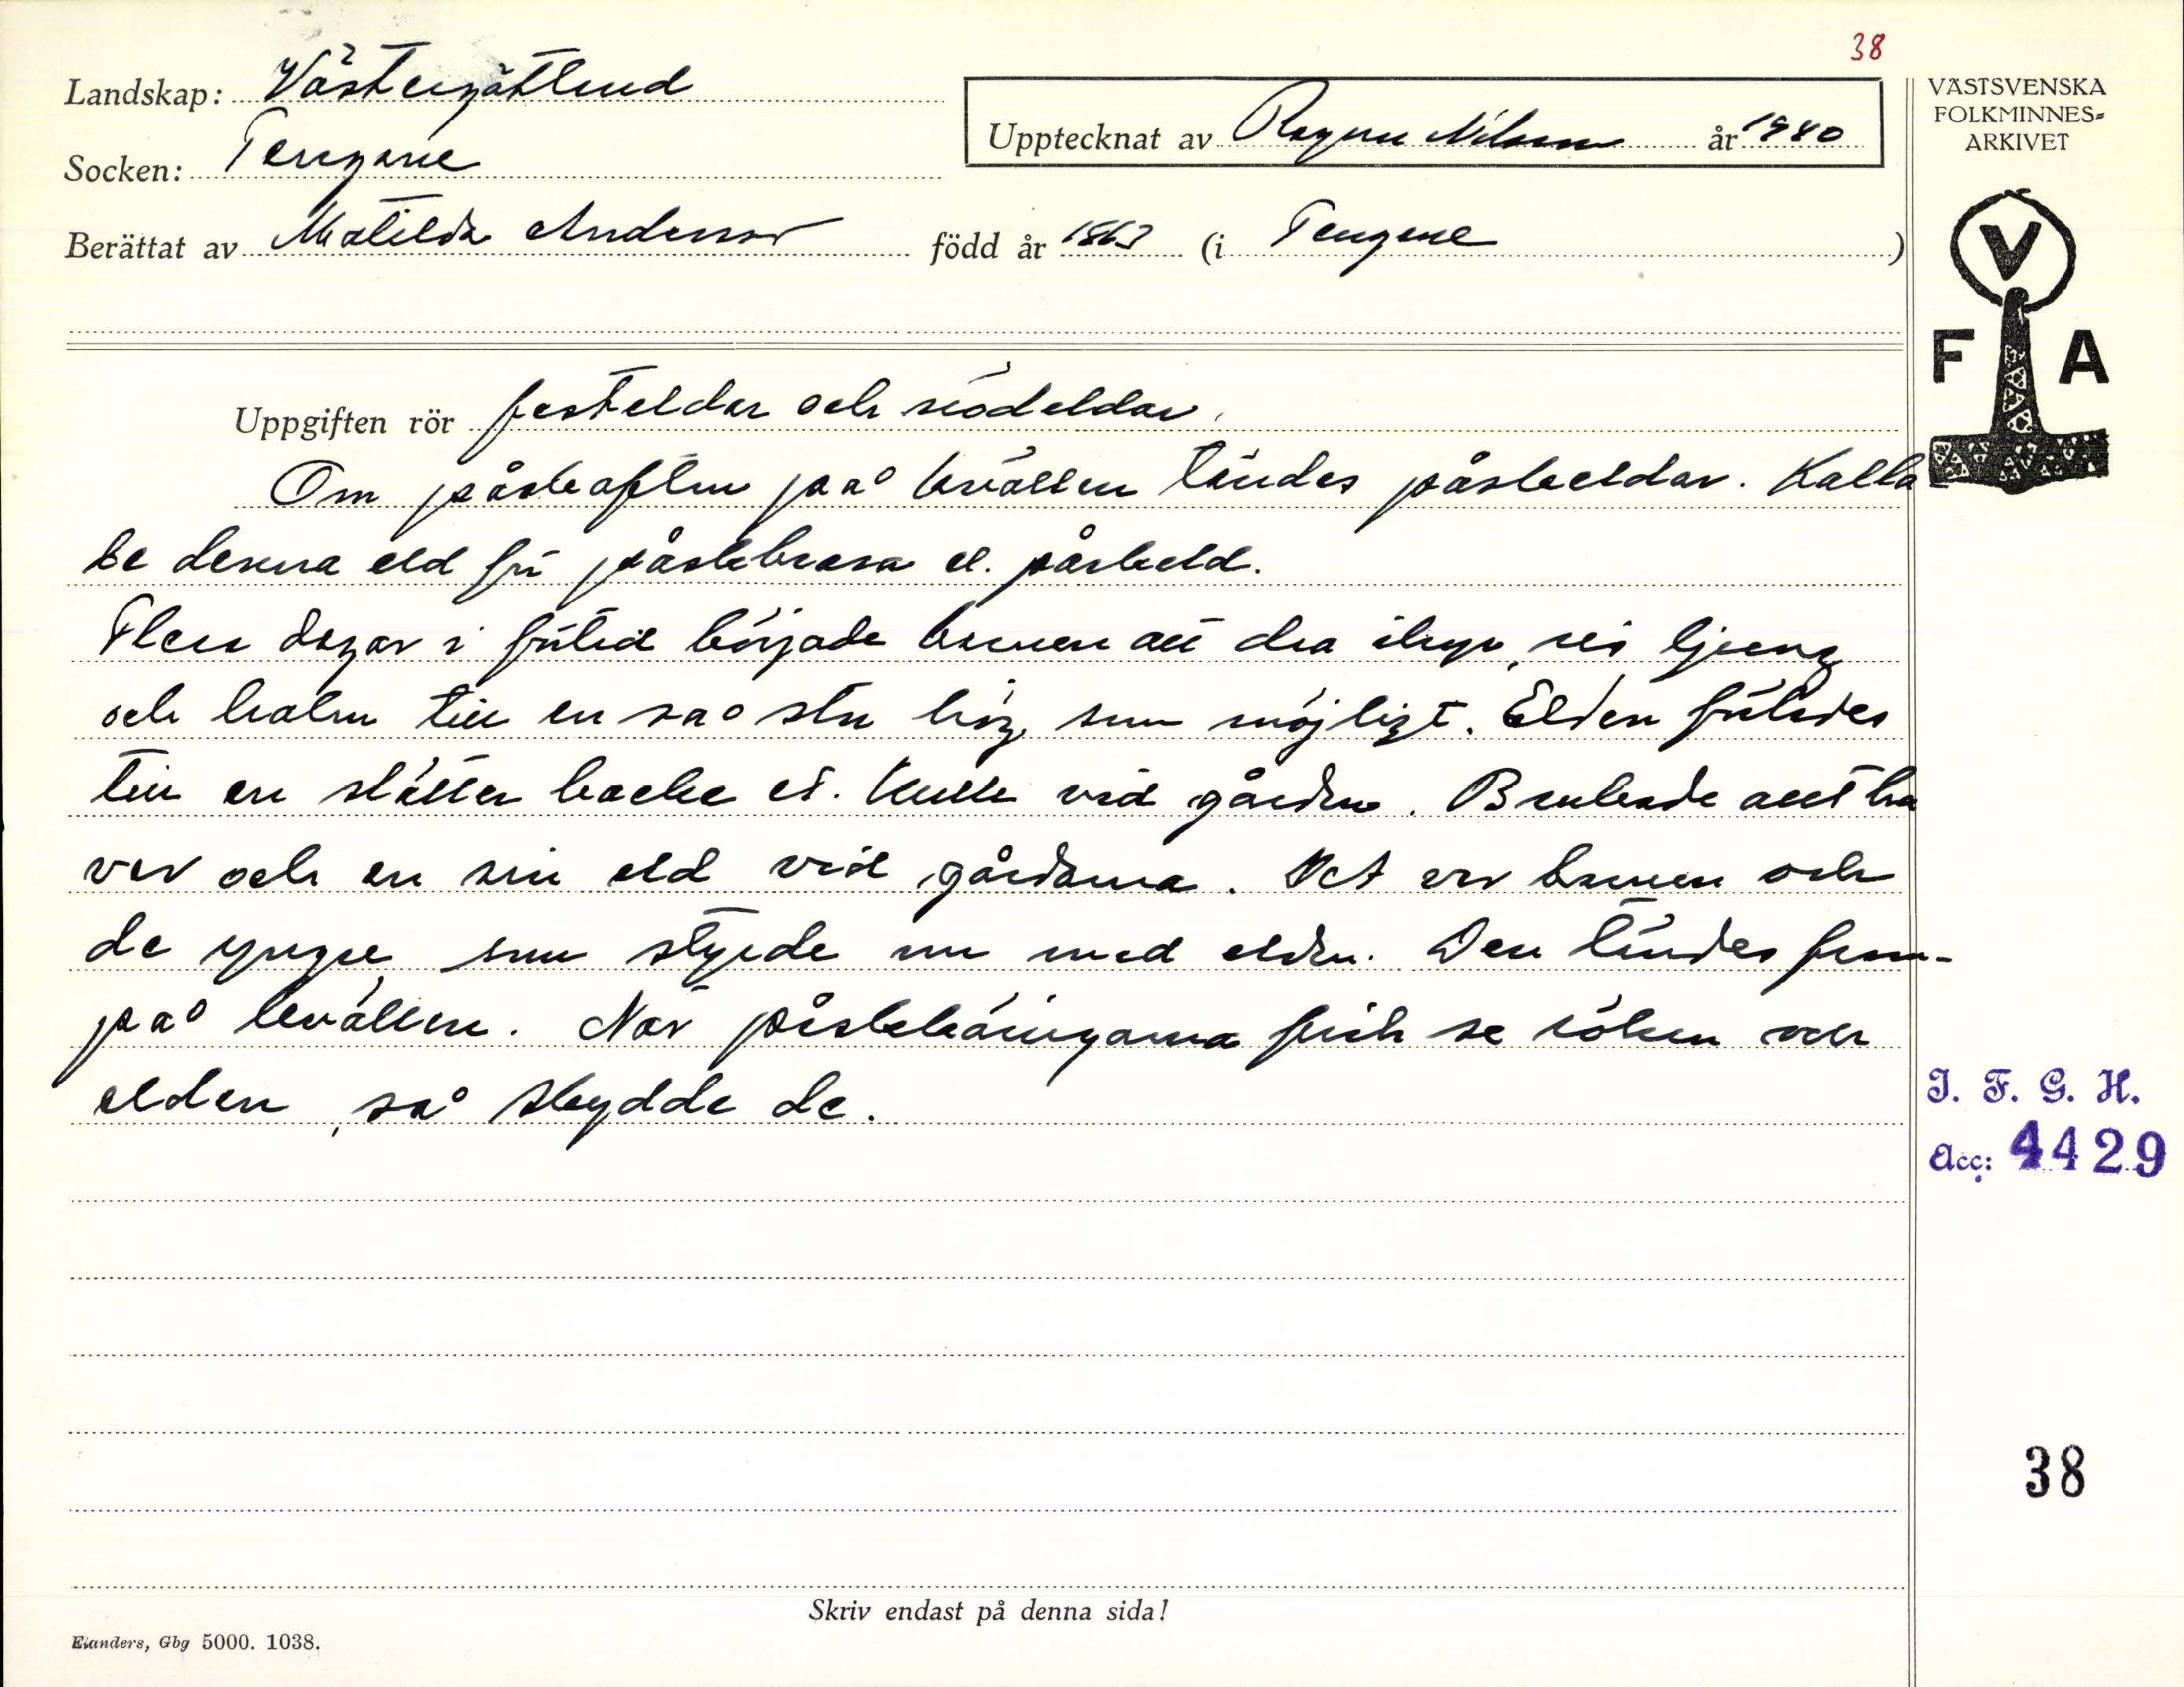 38
Landskap: Västergötland
Socken: Tengene
Upptecknat av Ragnar Nilsson år 1940
VÄSTSVENSKA
FOLKMINNES-
ARKIVET
Berättat av Matilda Andersson född år 1863 (i Tengene)
V
F A
Uppgiften rör festeldar och nödeldar.
Om påskaften på kvällen tändes påskeldar. Kalla-
de denna eld för påskbrasa el. påskeld.
Flera dagar i förtid började barnen att dra ihop ris ljung
och halm till en så stor hög som möjligt. Elden förlades
till en slätter backe el. kulle vid gården. Brukade att ha
var och en sin eld vid gårdarna. Det var barnen och
de yngre som styrde om med elden. Den tändes fram-
på kvällen. När påskkäringarna fick se röken över
elden, så skydde de.
I. F. G. H.
Acc: 4429
38
Skriv endast på denna sida!
Elanders, Gbg 5000. 1038.